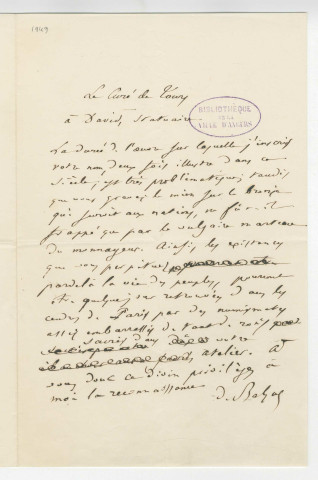 1949
Le Curé de Tours
à David, Statuaire
BIBLIOTHÈQUE
DE LA
VILLE D'ANGERS
La durée de l'œuvre sur laquelle j'inscris
votre nom, deux fois illustre dans ce
siècle, est très problématique ; tandis
que vous gravez le mien sur le bronze
qui survit aux nations, ne fût-il
frappé que par le vulgaire marteau
du monnayeur. Ainsi, les
que vous perpétuez
par delà la vie des peuples, pourront
être quelque jour retrouvées dans les
cendres de Paris par des numismates
assez embarrassés de tant de
dans votre
atelier. À
vous donc ce divin privilège, à
moi la reconnaissance
de Balzac